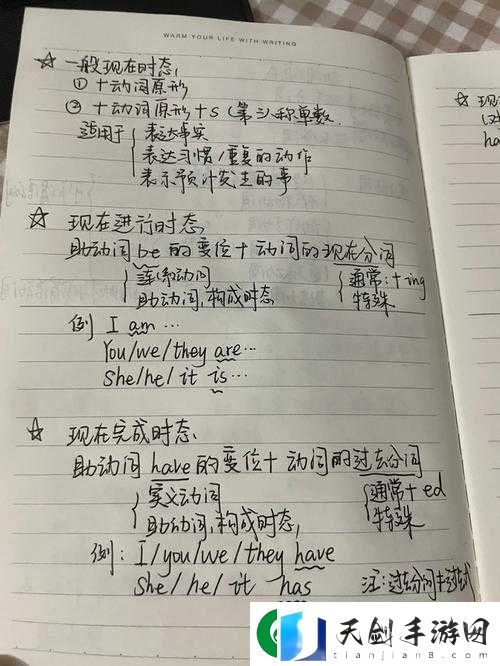 WARM YOUR LIFE WITH WRITING
☆ 一般现在时态,
① 十动词原形
② 十动词原形十s (第三人称单数.
适用于 { 表达事实
表达习惯/重复的动作
表示预计发生的事
☆ 现在进行时态,
助动词be的变位十动词的现在分词
{ 连系动词
助动词,构成时态
{ 通常:十ing
特殊
例 I am …
You/we/they are…
She/he/it is…
☆ 现在完成时态,
助动词have的变位十动词的过去分词
{ 实义动词
助动词,构成时态,
{ 通常十ed
特殊
例: I/you/we/they have
She/he/it has
注:过去分词
现
ha
天剑手游网
tianjian8.com